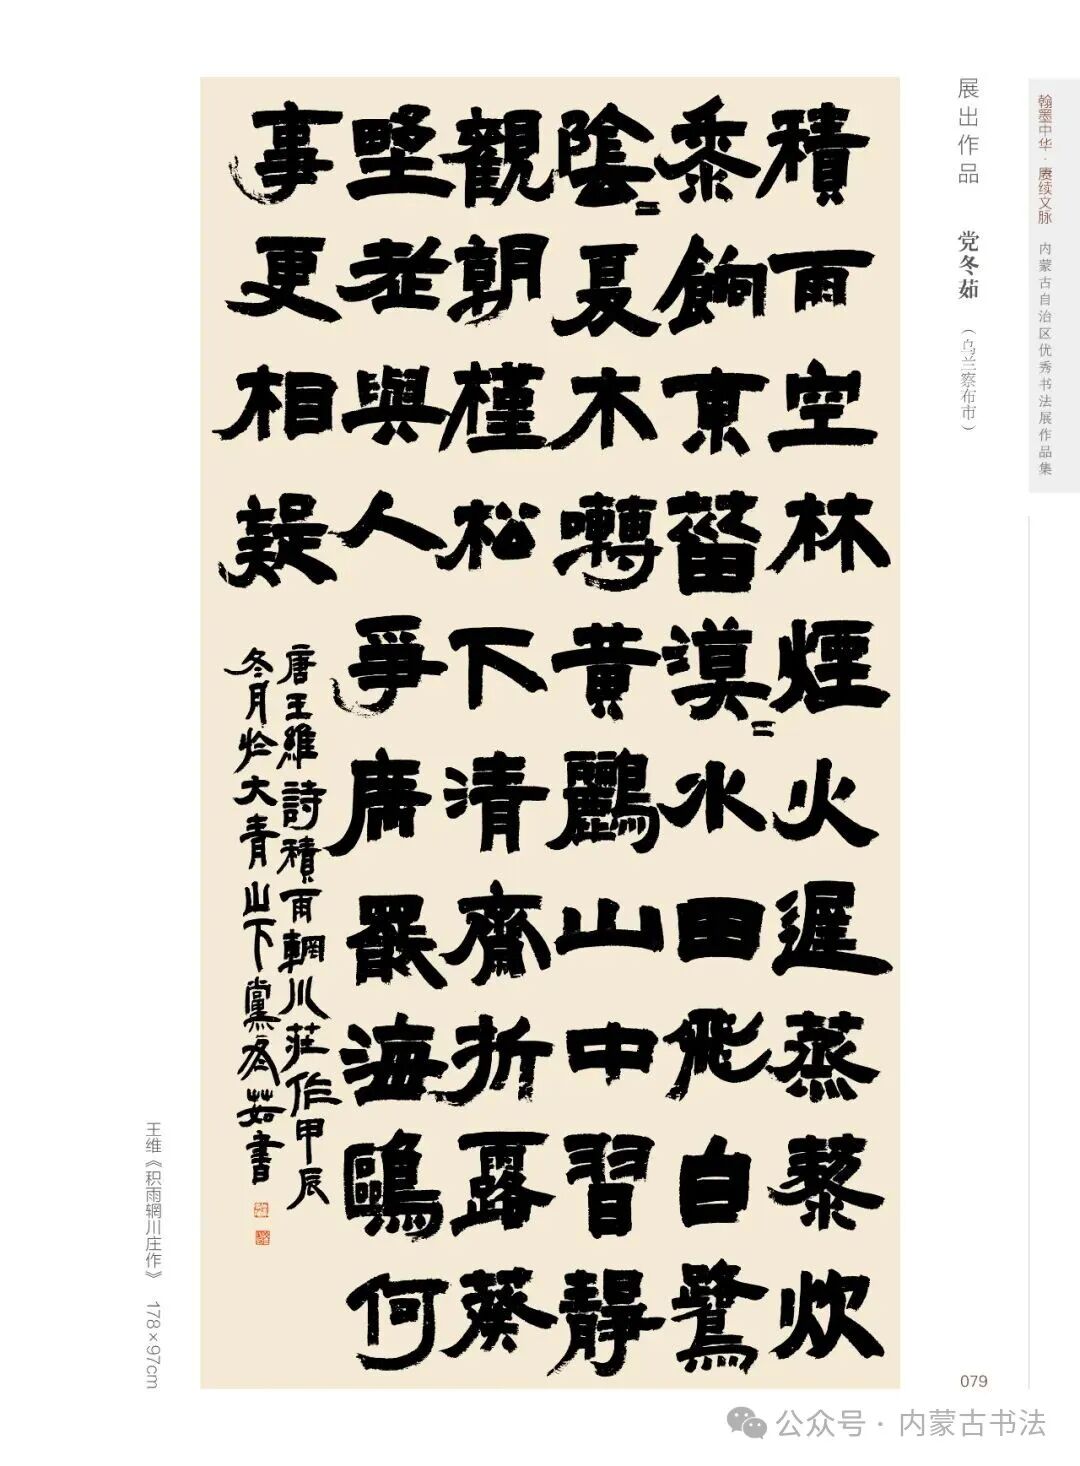 翰墨中华·赓续文脉 内蒙古自治区优秀书法展作品集
展出作品 党冬茹（乌兰察布市）
積雨空林煙火遲蒸藜炊
黍餉東菑漠〻水田飛白鷺
陰〻夏木囀黃鸝山中習靜
觀朝槿松下清齋折露葵
野老與人爭席罷海鷗何
事更相疑
唐王維詩積雨輞川莊作甲辰
冬月於大青山下黨冬茹書
王维《积雨辋川庄作》 178×97cm
079
公众号·内蒙古书法